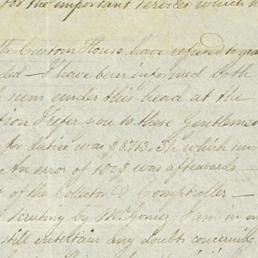 for the important services which
the Custom House, have refused to gra
ded – I have been informed both
sum under this head at the
tion I refer you to these Gentlemen
for duties was $ 8763.31 which
An error of 100$ was afterwards –
of the Collector & Comptroller –
scrutiny by Mr Gomez I am in
still entertain any doubts concerning